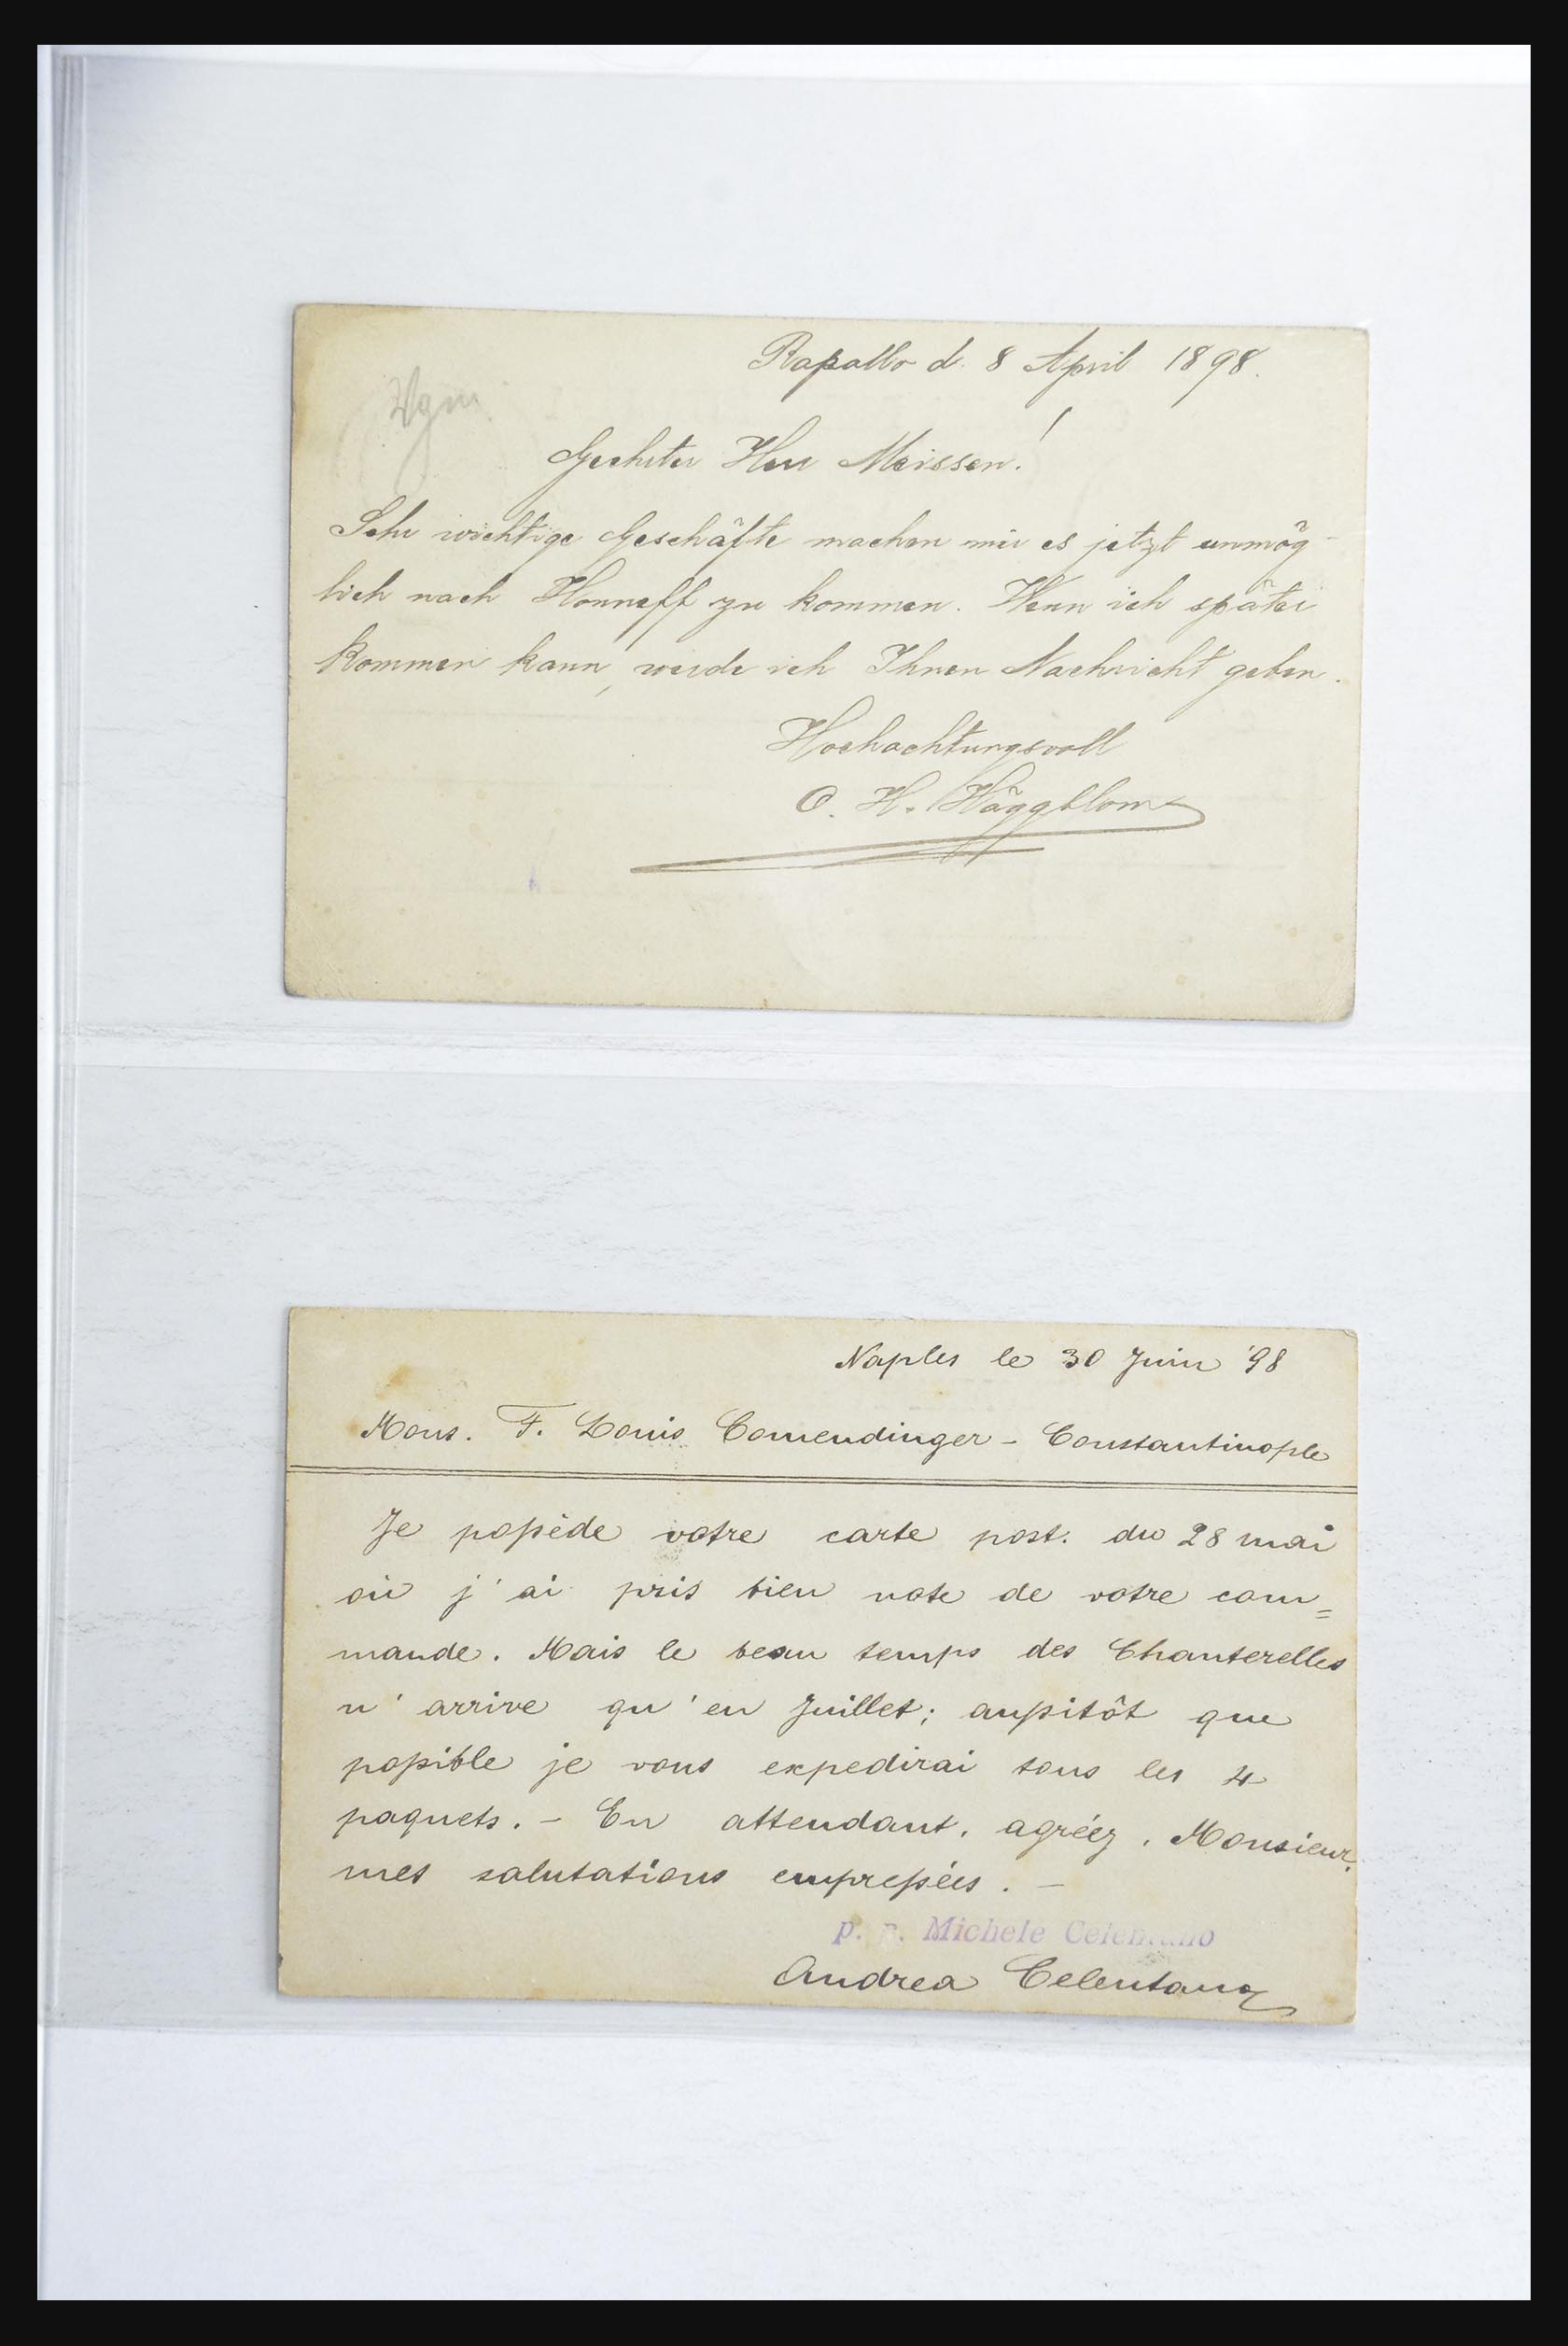 Rapallo d. 8 April 1898.
Geehrter Herr Meissen!
Sehr wichtige Geschäfte machen mir es jetzt unmög-
lich nach Honneff zu kommen. Wenn ich später
kommen kann, werde ich Ihnen Nachricht geben.
Hochachtungsvoll
O. H. Häggblom
Naples le 30 Juin '98
Mons. F. Louis Comendinger - Constantinople
Je possède votre carte post. du 28 mai
où j'ai pris bien note de votre com=
mande. Mais le beau temps des Chanterelles
n'arrive qu'en Juillet; aussitôt que
possible je vous expedirai tous les 4
paquets. - En attendant, agréez, Monsieur,
mes salutations empressées. -
p. p. Michele Celentano
Andrea Celentano